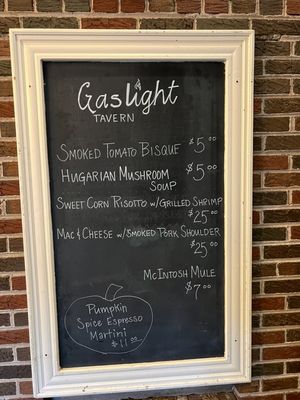 Gaslight
TAVERN
SMOKED TOMATO BISQUE $5.00
HUGARIAN MUSHROOM $5.00
SOUP
SWEET CORN RISOTTO W/GRILLED SHRIMP
$25.00
MAC & CHEESE W/SMOKED PORK SHOULDER
$25.00
MCINTOSH MULE
$7.00
PUMPKIN
SPICE ESPRESSO
MARTINI
$11.00